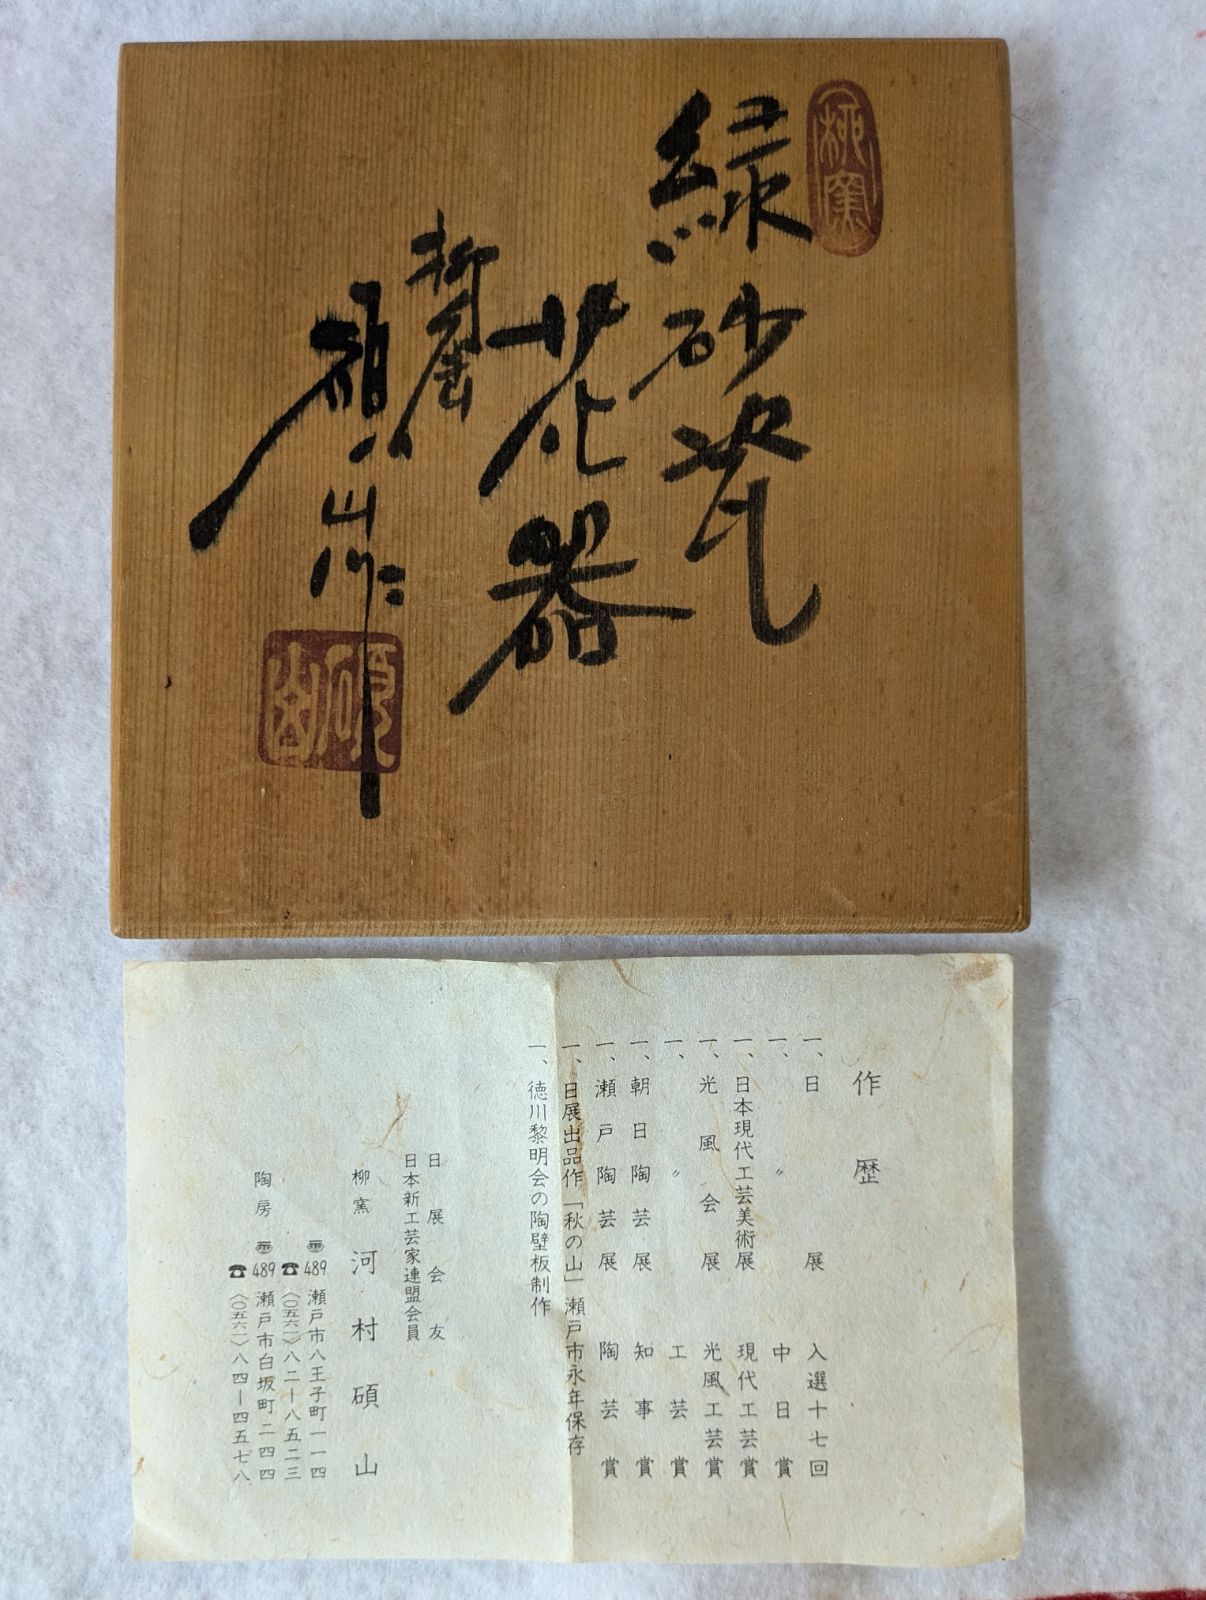 柳窯
緑砂瓷
花器
柳窯
碩山作
碩山
作歴
一、日展 入選十七回
一、〃 中日賞
一、日本現代工芸美術展 現代工芸賞
一、光風会展 光風工芸賞
一、〃 工芸賞
一、朝日陶芸展 知事賞
一、瀬戸陶芸展 陶芸賞
一、日展出品作「秋の山」瀬戸市永年保存
一、徳川黎明会の陶壁板制作
日展会友
日本新工芸家連盟会員
柳窯 河村碩山
〠489 瀬戸市八王子町一一四
☎〈〇五六一〉八二ー八五二三
陶房 〠489 瀬戸市白坂町二四四
☎〈〇五六一〉八四ー四五七八